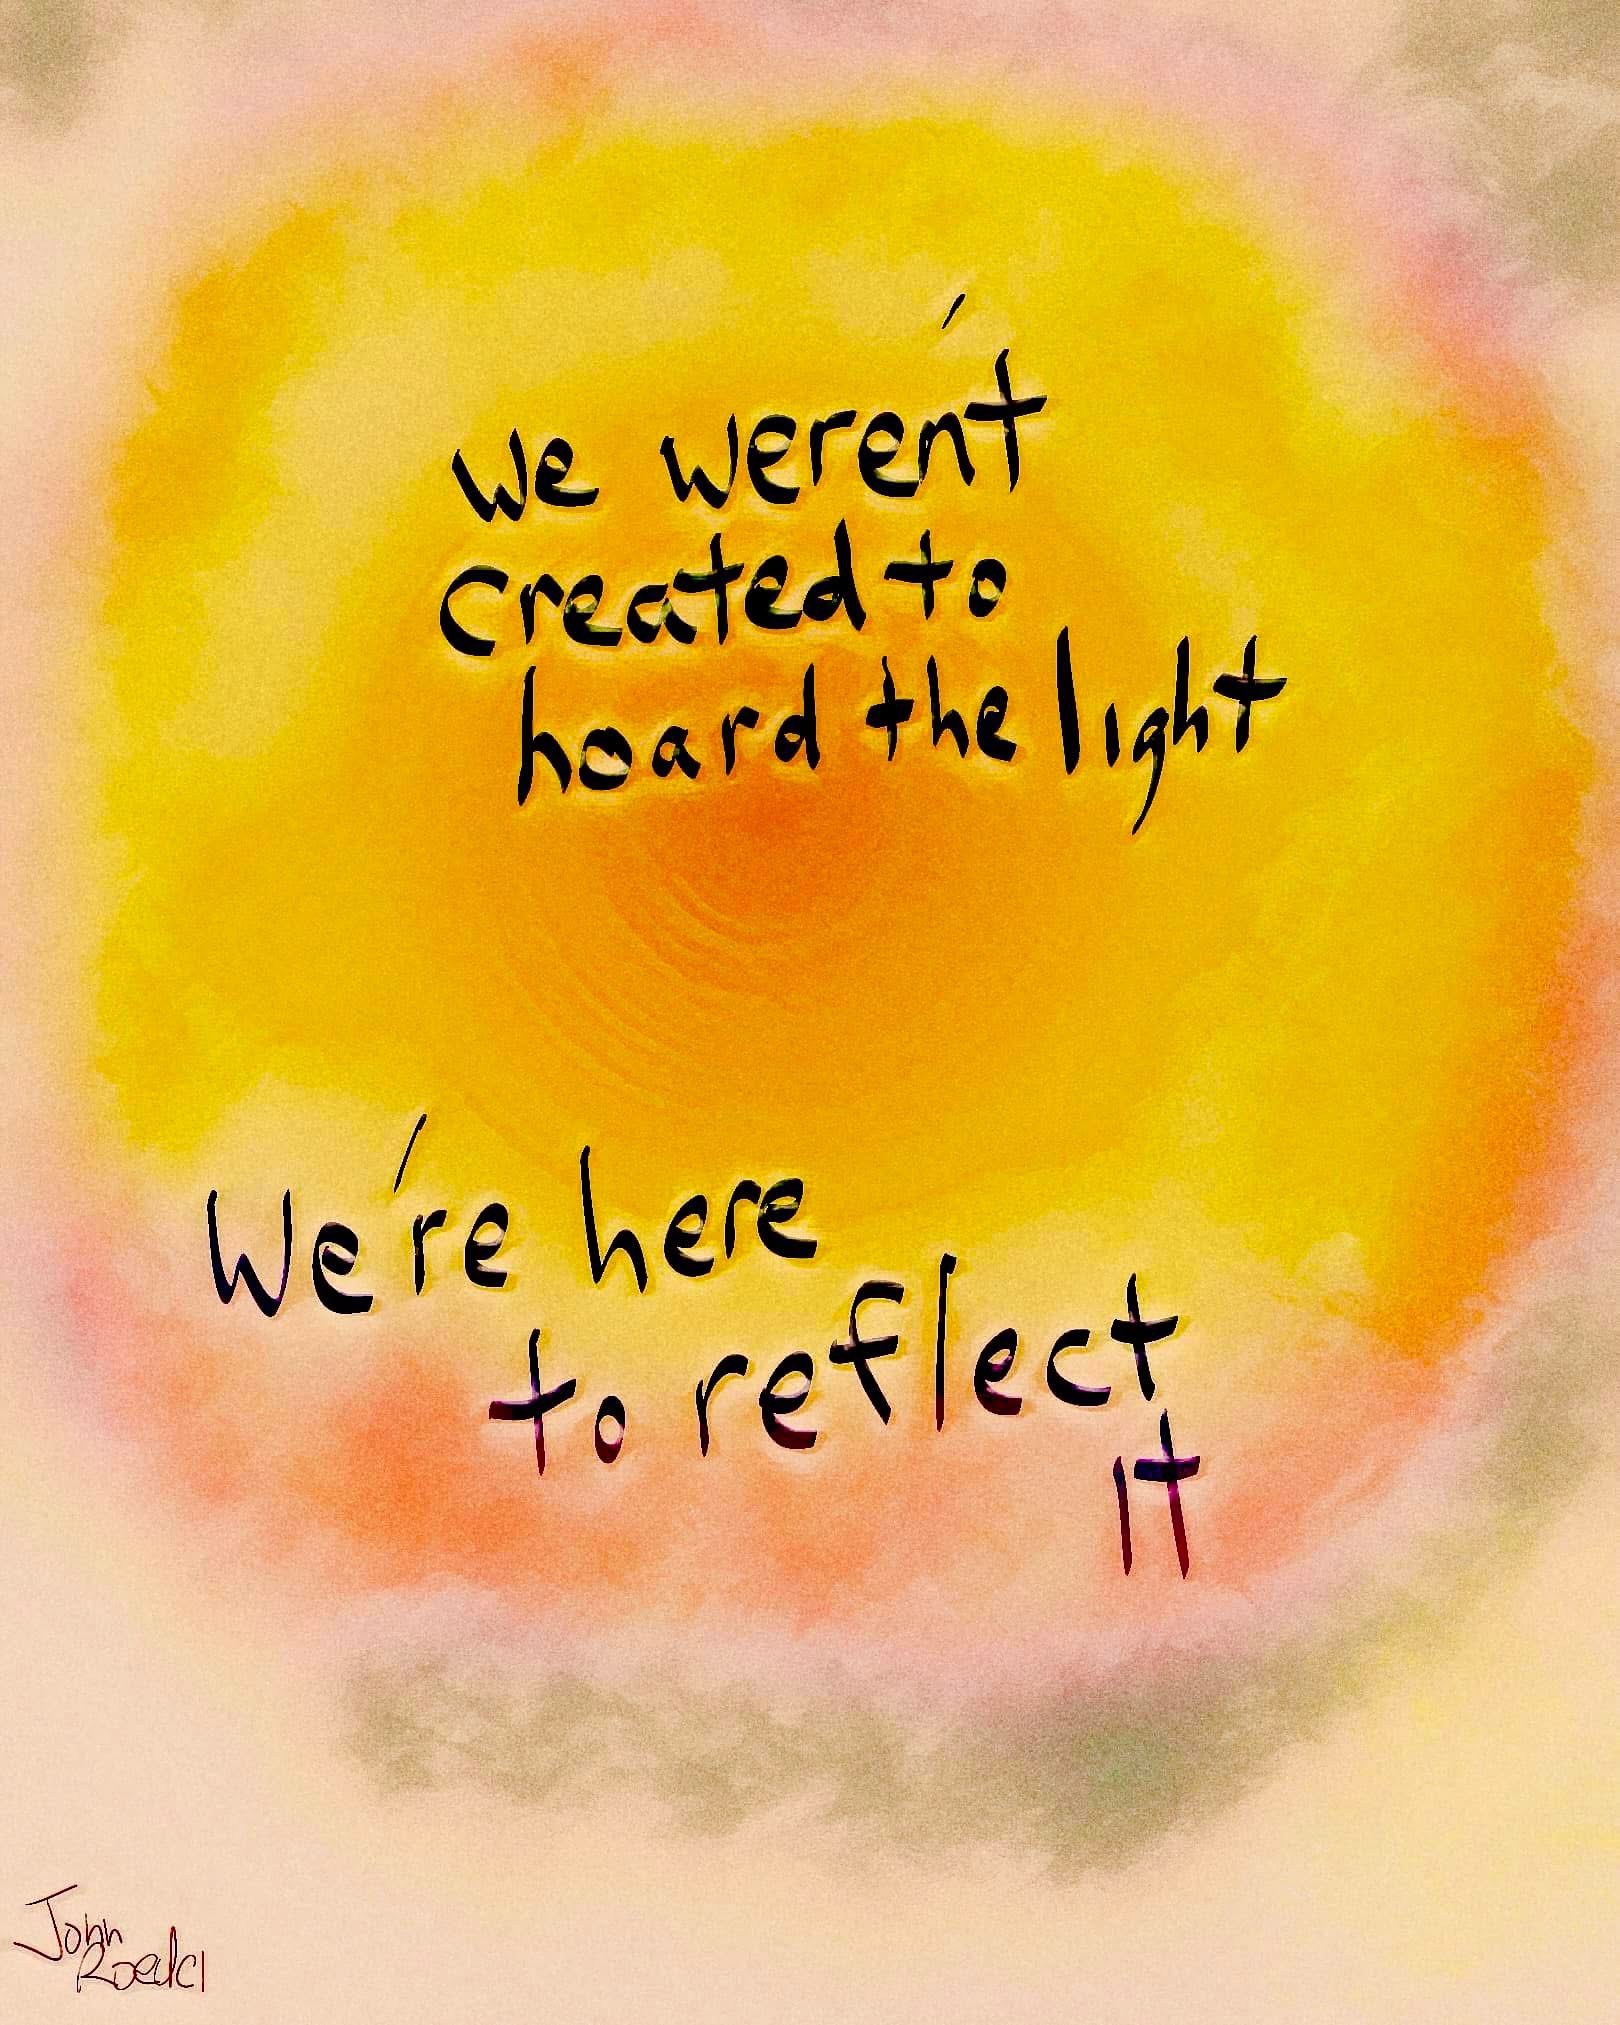 we weren't
created to
hoard the light
We're here
to reflect
it
John
Roedel